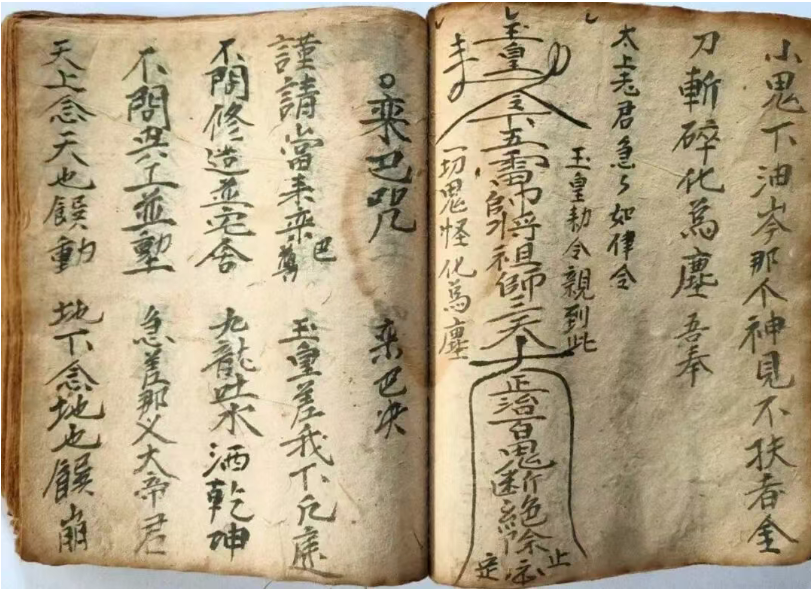 小鬼下油岑那个神見不扶春全
刀斬碎化為塵 吾奉
太上老君急々如律令
玉皇勅令親到此
玉皇
令下五雷帥將祖師三天
正治百鬼斷絕除
止
定
一切鬼怪化為塵
栾巴咒 栾巴决
謹請當来栾巴 玉皇差我下凡塵
不問修造並宅舍 九龍吐水洒乾坤
不問興工並動 急差那乂大帝君
天上念天也饙動 地下念地也饙崩